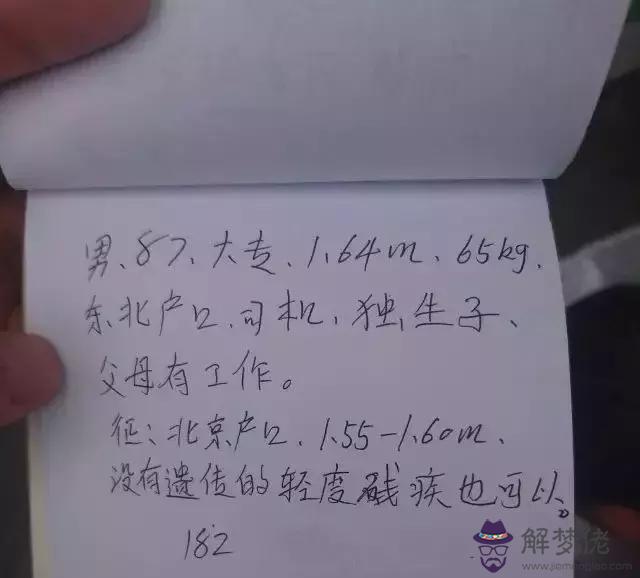 男、87、大专、1.64m、65kg、
东北户口、司机、独生子、
父母有工作。
征：北京户口、1.55-1.60m、
没有遗传的轻度残疾也可以。
182
解梦佬
www.jiemenglao.com